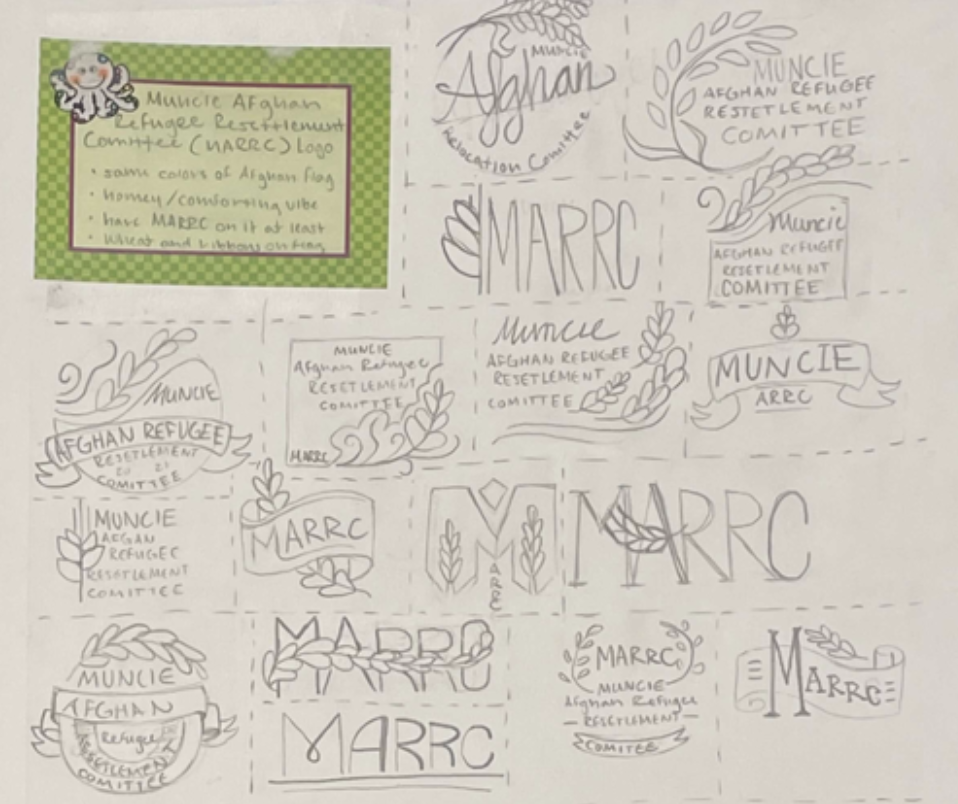 Muncie Afghan
Refugee Resettlement
Comittee (MARRC) Logo
• same colors of Afghan flag
• homey/comforting vibe
• have MARRC on it at least
• Wheat and ribbons on flag
MUNCIE
Afghan
Relocation Comittee
MUNCIE
AFGHAN REFUGEE
RESTETLEMENT
COMITTEE
MARRC
Muncie
AFGHAN REFUGEE
RESETLEMENT
COMITTEE
MUNCIE
AFGHAN REFUGEE
RESETLEMENT
20 21
COMITTEE
MUNCIE
Afghan Refugee
RESETLEMENT
COMITTEE
MARRC
Muncie
AFGHAN REFUGEE
RESETLEMENT
COMITTEE
MUNCIE
ARRC
MUNCIE
AFGAN
REFUGEE
RESETLEMENT
COMITTEE
MARRC
M
A
R
R
C
MARRC
MUNCIE
AFGHAN
Refugee
RESETLEMENT
COMITTEE
MARRC
MARRC
MARRC
MUNCIE
Afghan Refugee
RESETLEMENT
COMITEE
MARRC